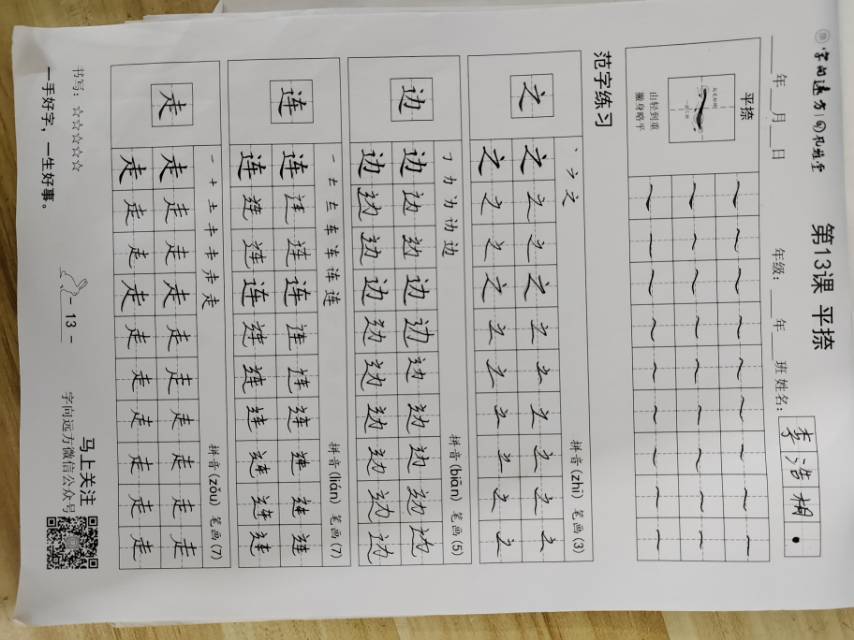 字向远方
第13课 平捺
___年___月___日 年级：___年___班 姓名：李浩
平捺
由轻到重
范字练习
之 拼音(zhī) 笔画(3)
之之之之之之之之之之
之之之之之之之之之之
边 拼音(biān) 笔画(5)
边边边边边边边边边边
边边边边边边边边边边
连 拼音(lián) 笔画(7)
连连连连连连连连连连
连连连连连连连连连连
走 拼音(zǒu) 笔画(7)
走走走走走走走走走走
走走走走走走走走走走
书写：☆☆☆☆☆
一手好字，一生好事。
- 13 -
马上关注
字向远方微信公众号